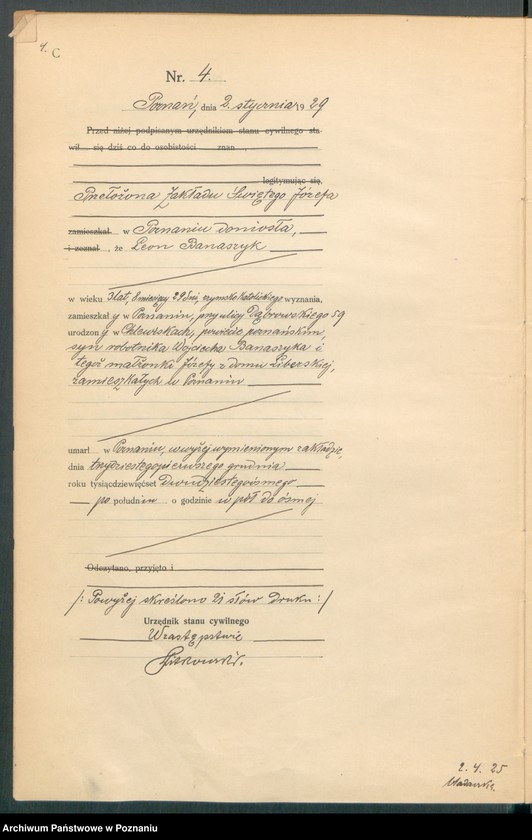 4. C
Nr. 4.
Poznań, dnia 2. stycznia 1929
Przed niżej podpisanym urzędnikiem stanu cywilnego sta
wił się dziś co do osobistości znan
legitymując się,
Przełożona Zakładu Świętego Józefa
zamieszkał w Poznaniu doniosła,
i zeznał, że Leon Banaszyk
w wieku 3 lat, 8 miesięcy 29 dni, rzymsko katolickiego wyznania,
zamieszkał y w Poznaniu, przy ulicy Dąbrowskiego 59
urodzon y w powiecie poznańskim,
syn robotnika Wojciecha Banaszyka i
tegoż małżonki Józefy z domu Liberskiej,
zamieszkałych w Poznaniu
umarł w Poznaniu, w wyżej wymienionym zakładzie,
dnia trzydziestego pierwszego grudnia
roku tysiącdziewięćset dwudziestego ósmego
po południu o godzinie w pół do ósmej
Odczytano, przyjęto i
/: Powyżej skreślono 21 słów druku :/
Urzędnik stanu cywilnego
W zastępstwie
2. 4. 25
Archiwum Państwowe w Poznaniu